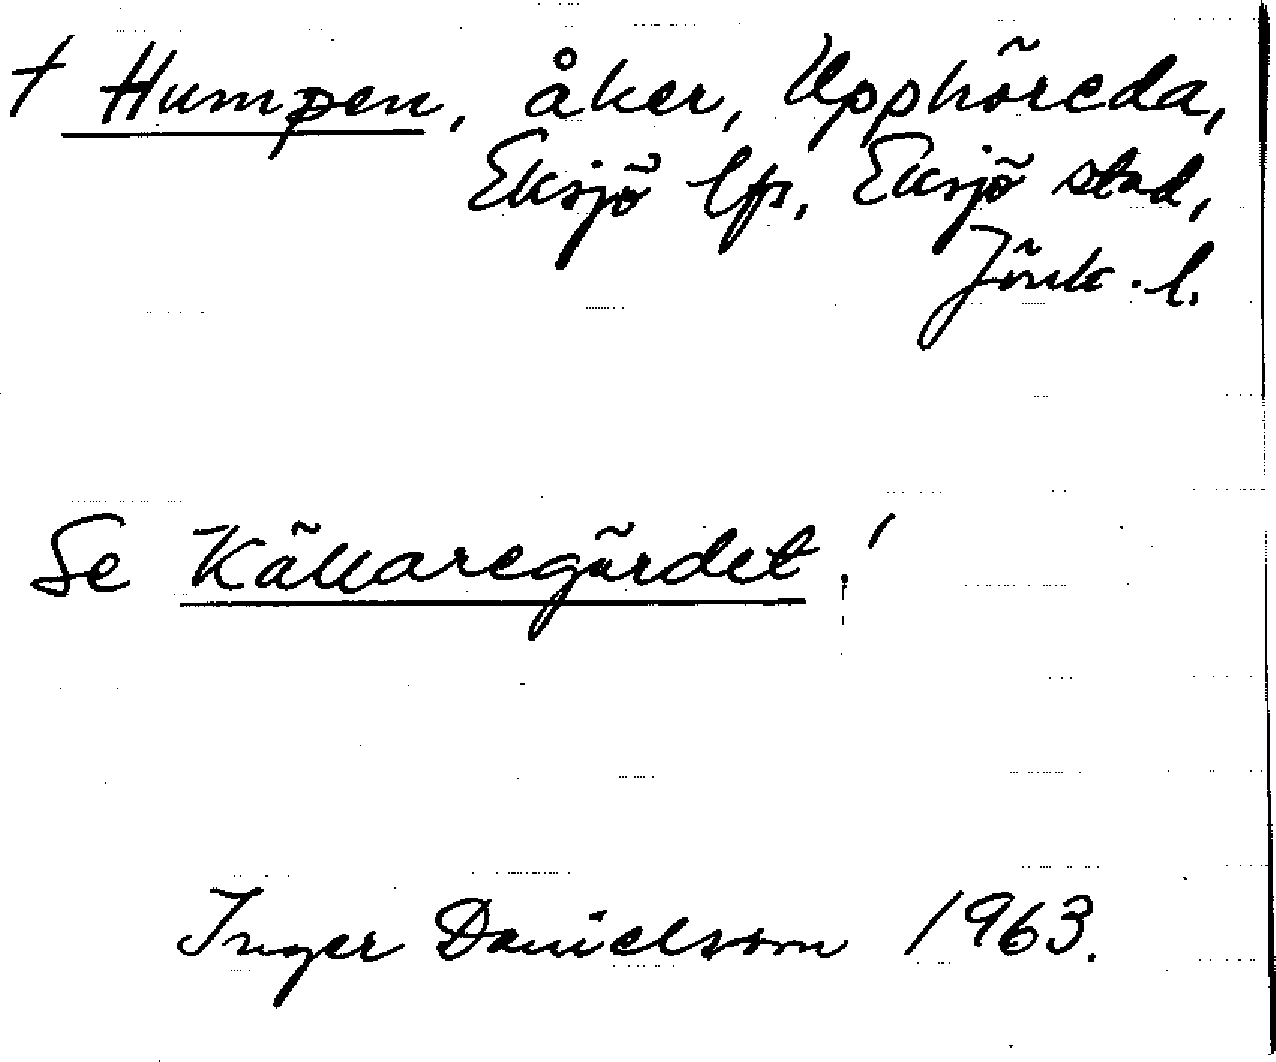 † Humpen, åker, Upphöreda,
Eksjö lfs, Eksjö stad,
Jönk. l.
Se Källaregärdet!
Inger Danielsson 1963.